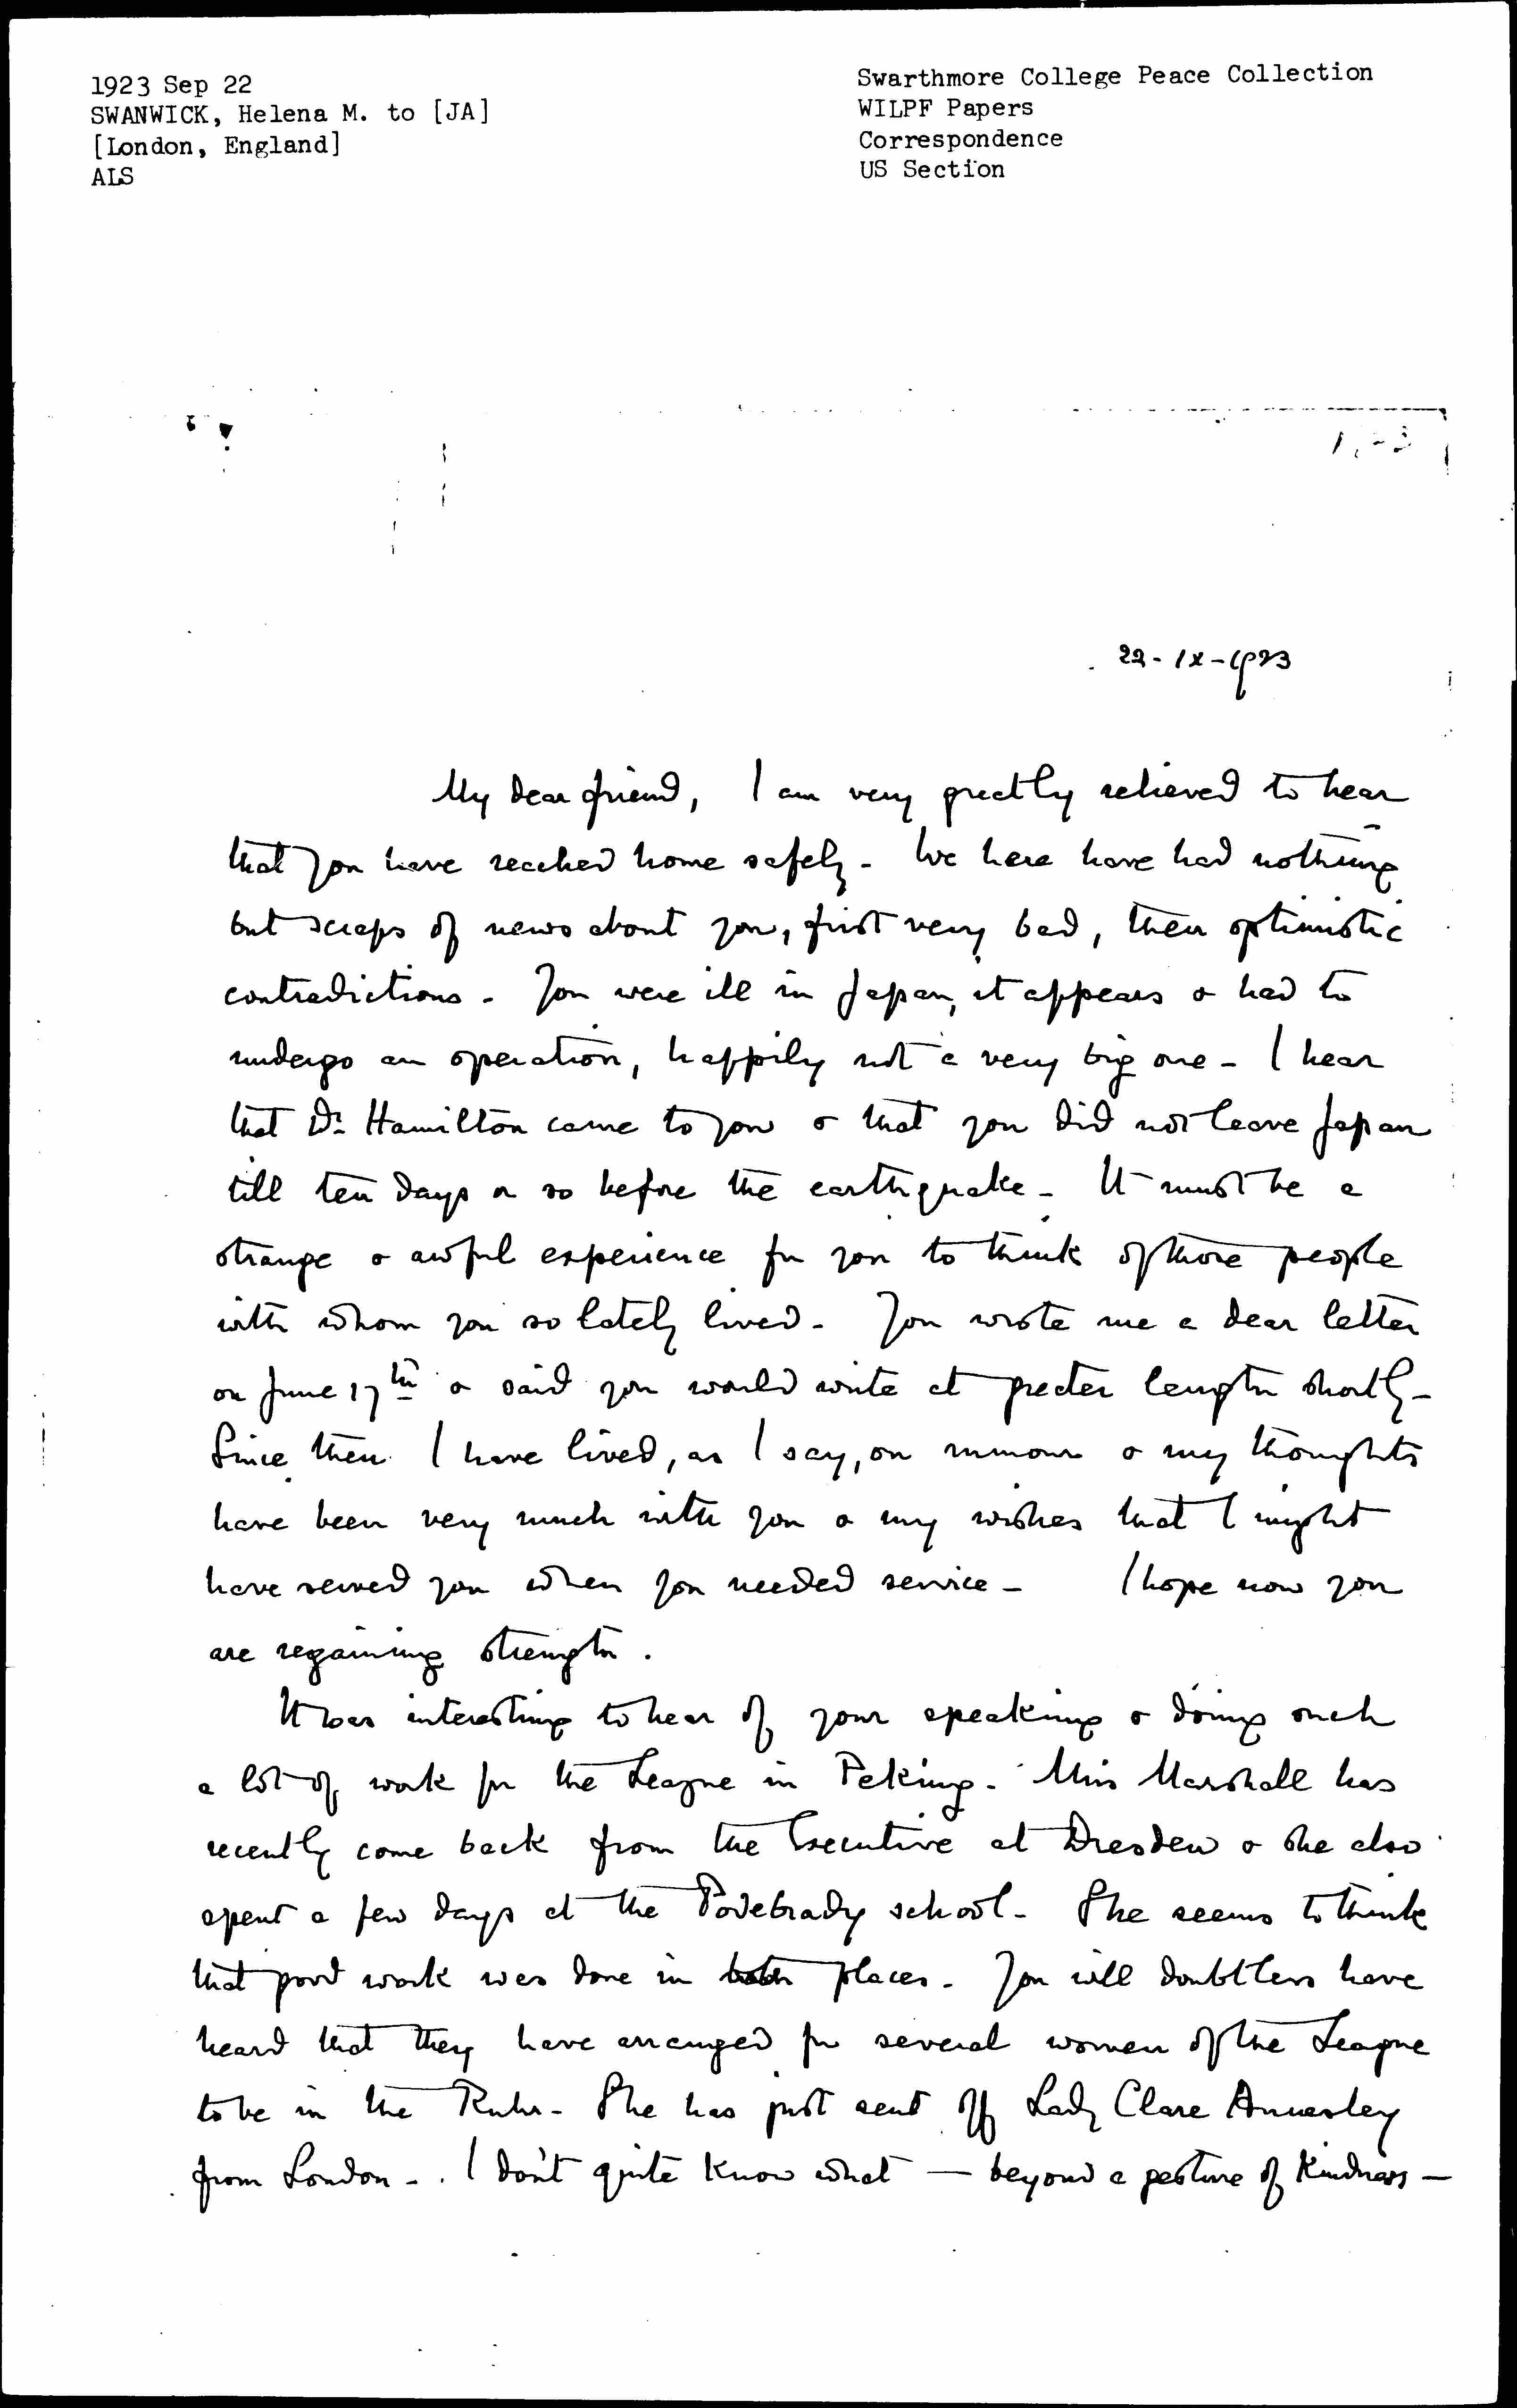 1923 Sep 22
SWANWICK, Helena M. to [JA]
[London, England]
ALS
Swarthmore College Peace Collection
WILPF Papers
Correspondence
US Section
22-IX-1923
My dear friend, I am very greatly relieved to hear
that you have reached home safely - We here have had nothing
but scraps of news about you, first very bad, then optimistic
contradictions - You were ill in Japan, it appears & had to
undergo an operation, happily not a very big one - I hear
that Dr Hamilton came to you & that you did not leave Japan
till ten days or so before the earthquake - It must be a
strange & awful experience for you to think of those people
with whom you so lately lived - You wrote me a dear letter
on June 17th & said you would write at greater length shortly -
Since then I have lived, as I say, on rumour & my thoughts
have been very much with you & my wishes that I might
have served you when you needed service - I hope now you
are regaining strength.
It was interesting to hear of your speaking & doing such
a lot of work for the League in Peking - Miss Marshall has
recently come back from the Executive at Dresden & she also
spent a few days at the Podebrady school - She seems to think
that good work was done in both places - You will doubtless have
heard that they have arranged for several women of the League
to be in the Ruhr - She has just sent off Lady Clare Annesley
from London - . I don't quite know what — beyond a gesture of kindness —